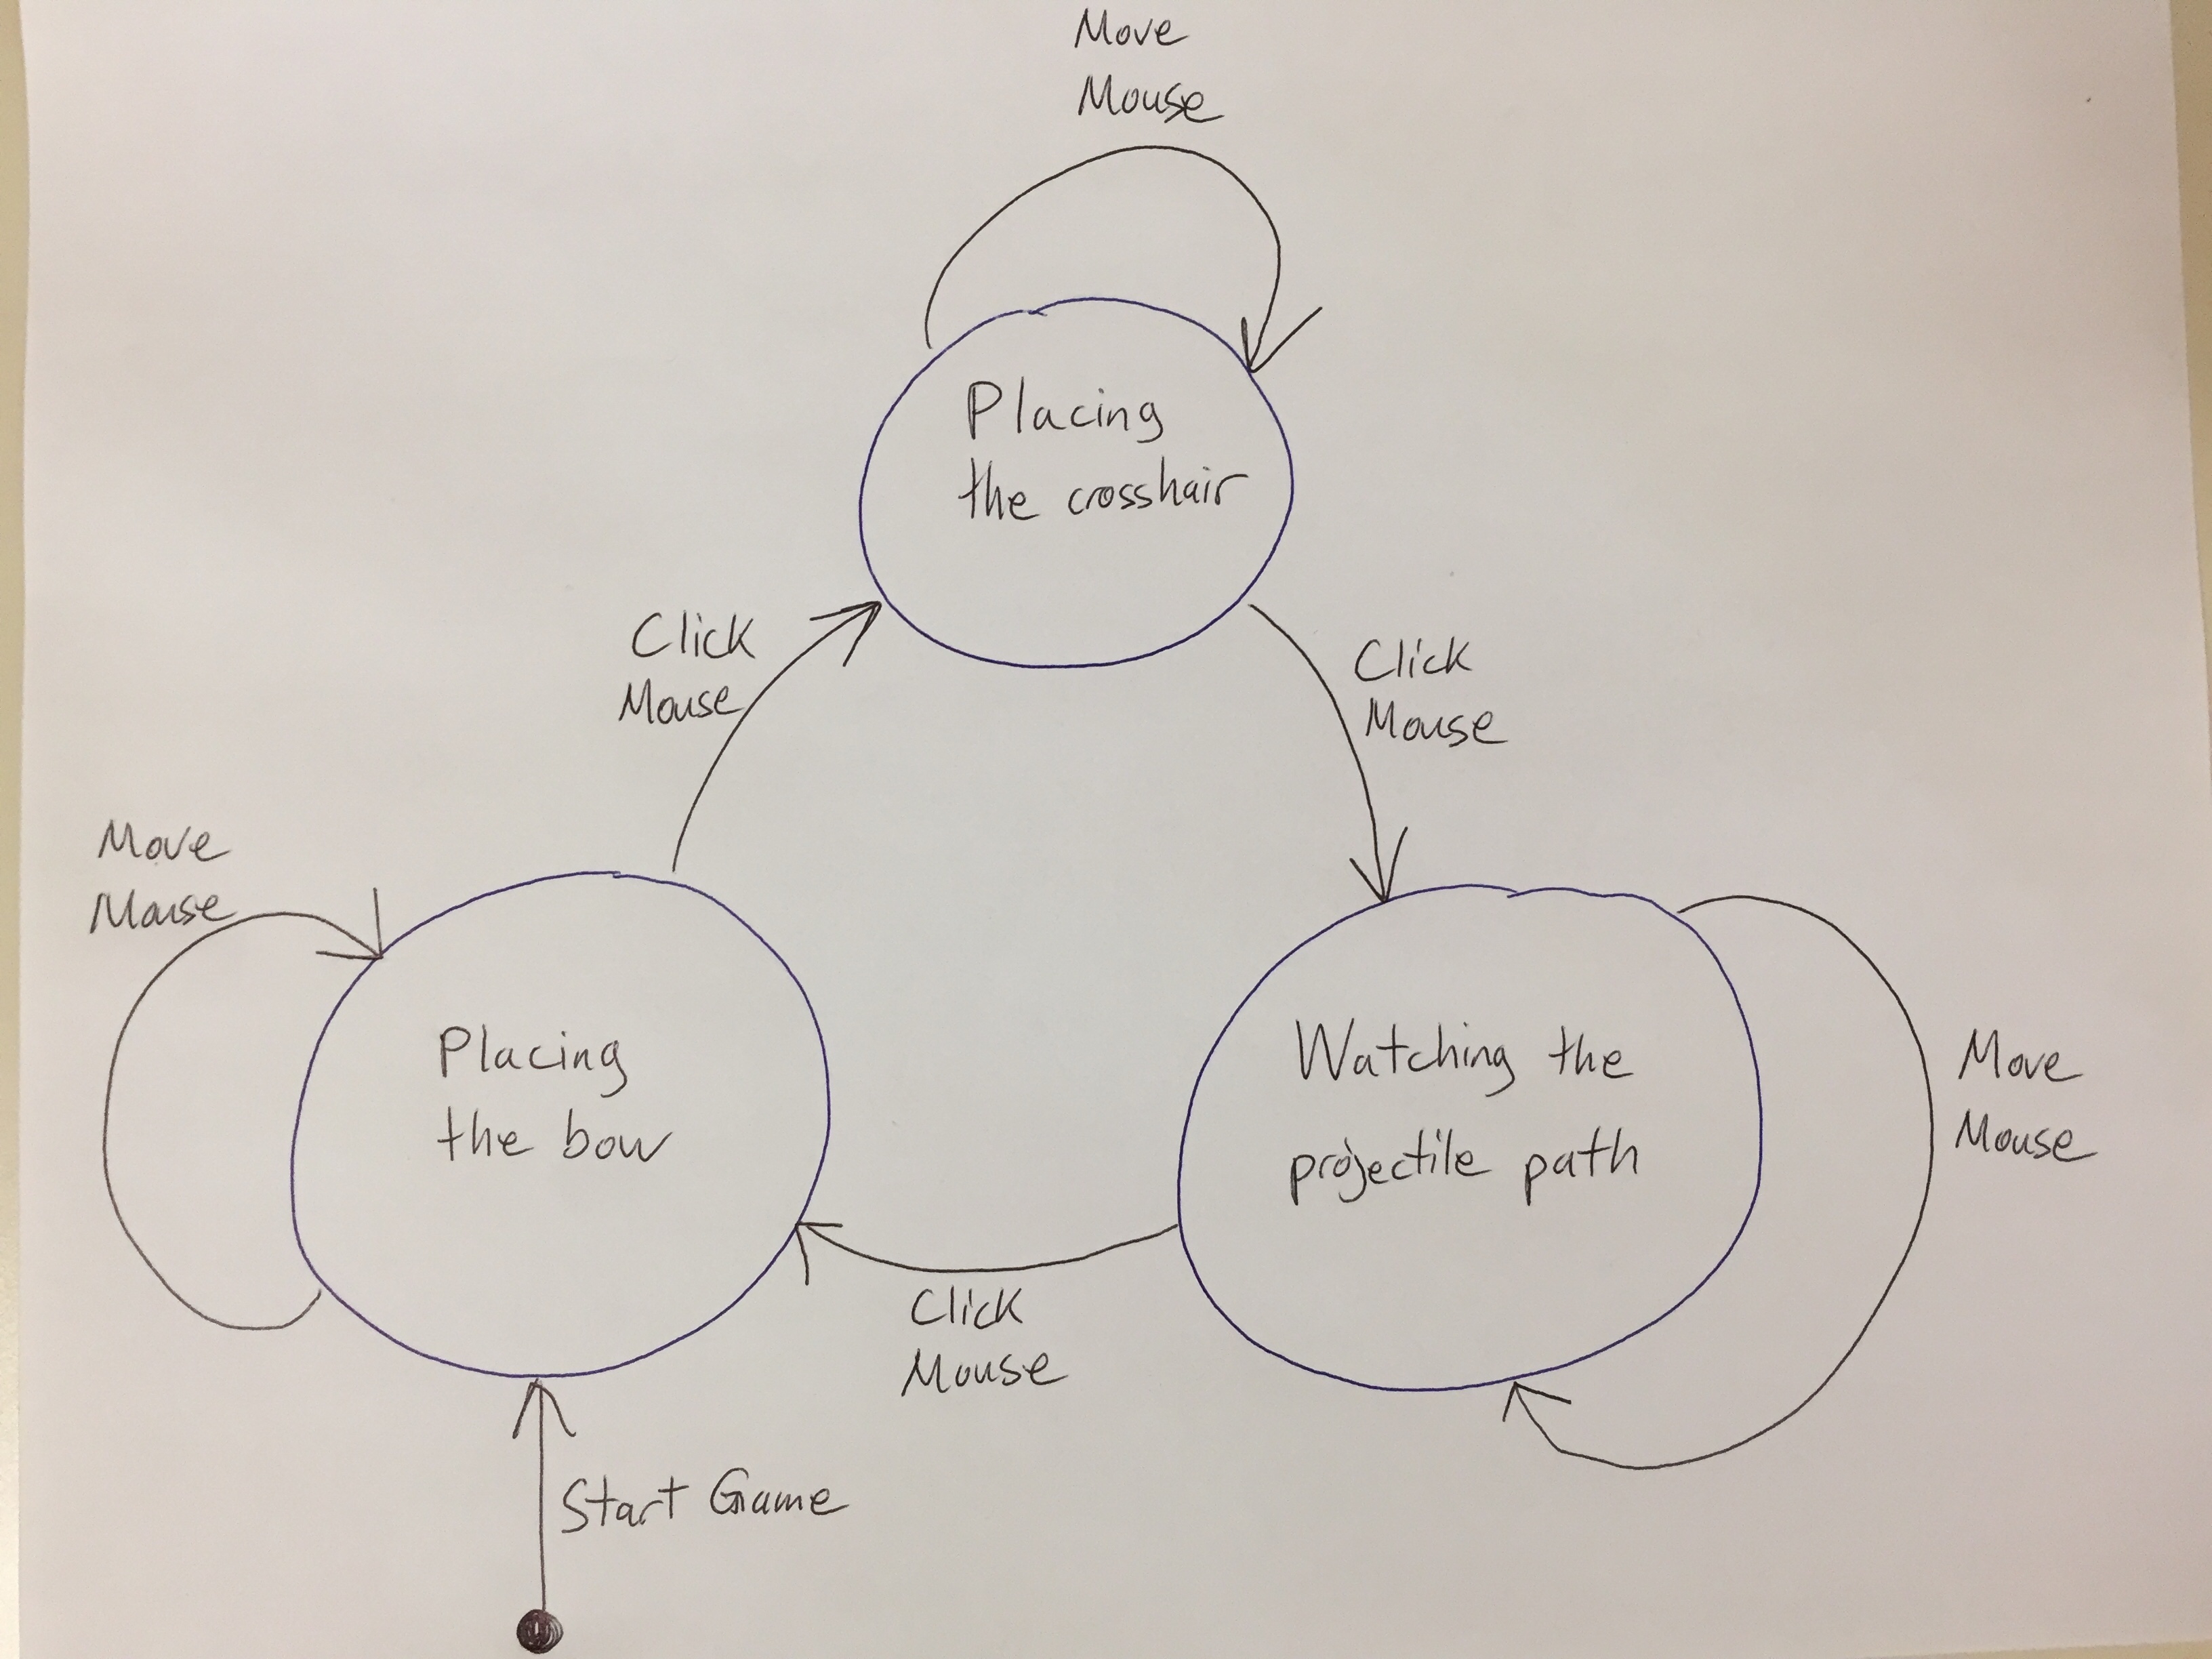 Move
Mouse
Placing
the crosshair
Click
Mouse
Click
Mouse
Move
Mouse
Placing
the bow
Watching the
projectile path
Move
Mouse
Click
Mouse
Start Game